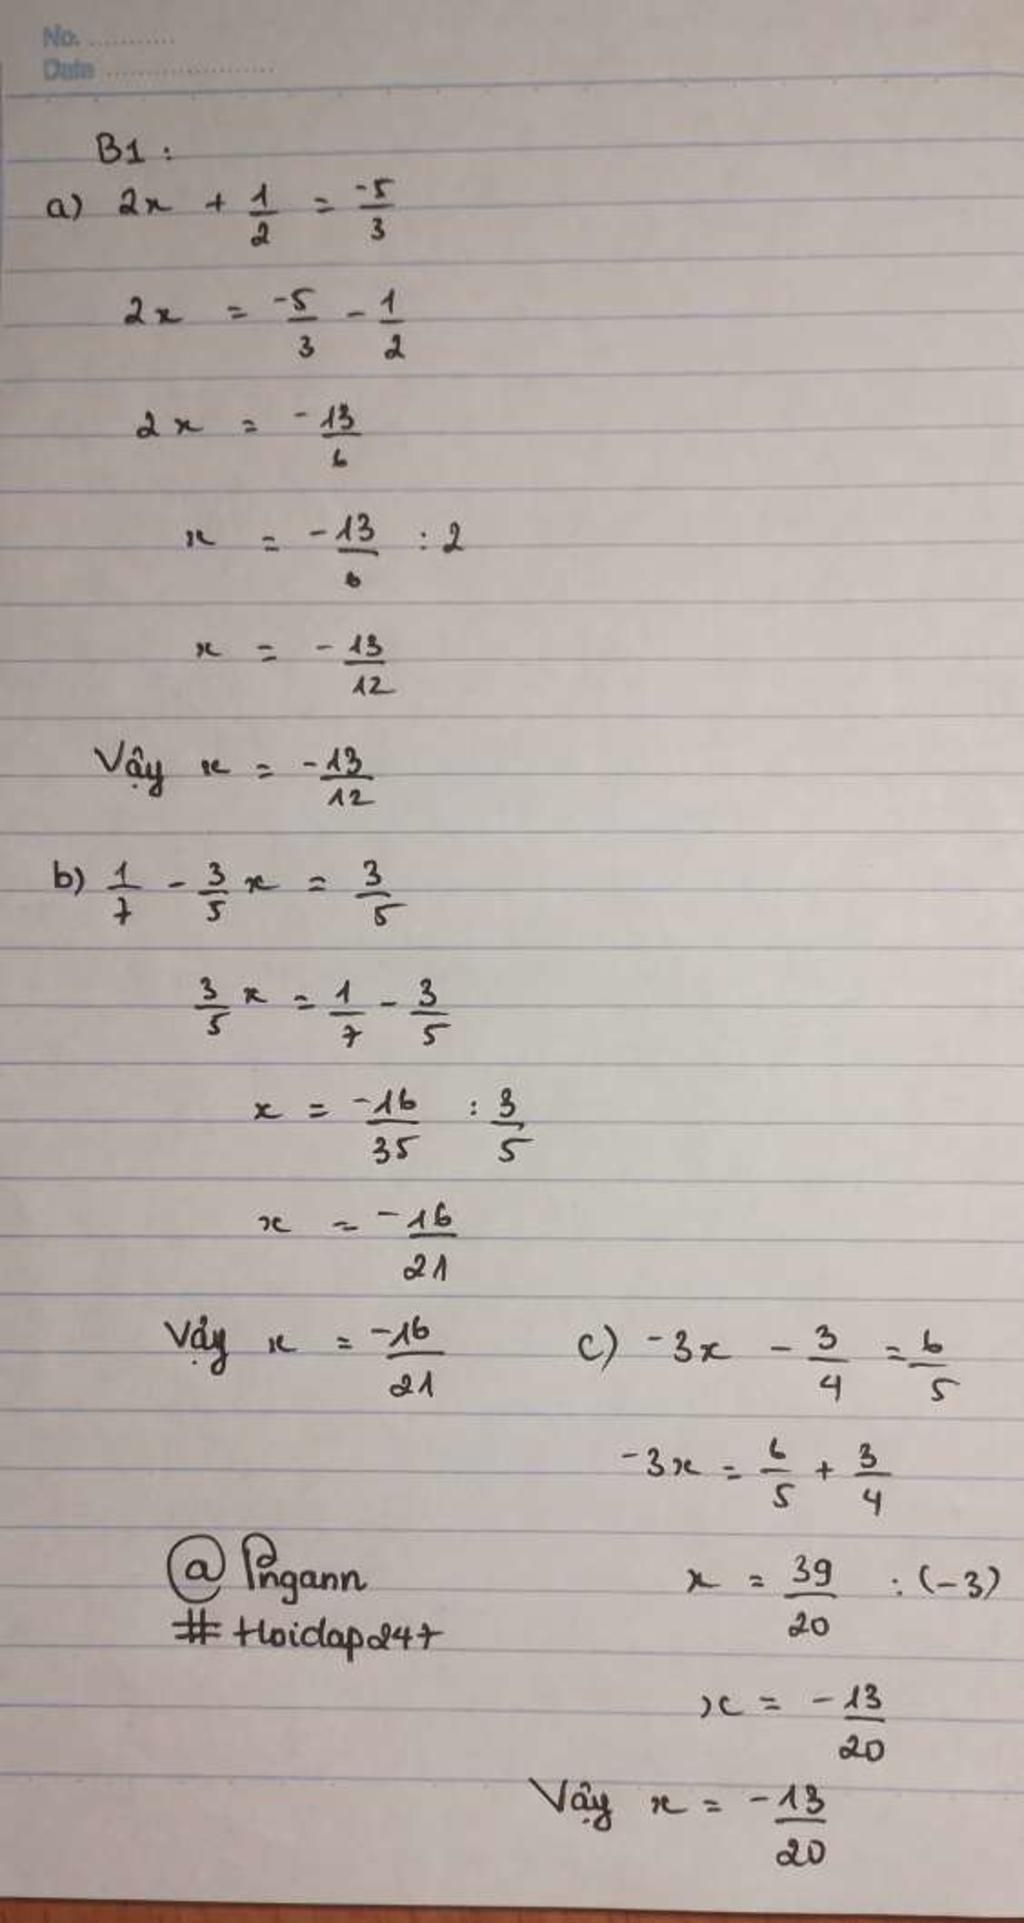 No. ...........
Date ...................
B1 :
a) 2x + 1/2 = -5/3
2x = -5/3 - 1/2
2x = -13/6
x = -13/6 : 2
x = -13/12
Vậy x = -13/12
b) 1/7 - 3/5 x = 3/5
3/5 x = 1/7 - 3/5
x = -16/35 : 3/5
x = -16/21
Vậy x = -16/21
c) -3x - 3/4 = 6/5
-3x = 6/5 + 3/4
x = 39/20 : (-3)
x = -13/20
Vậy x = -13/20
@Pngann
#Hoidap247